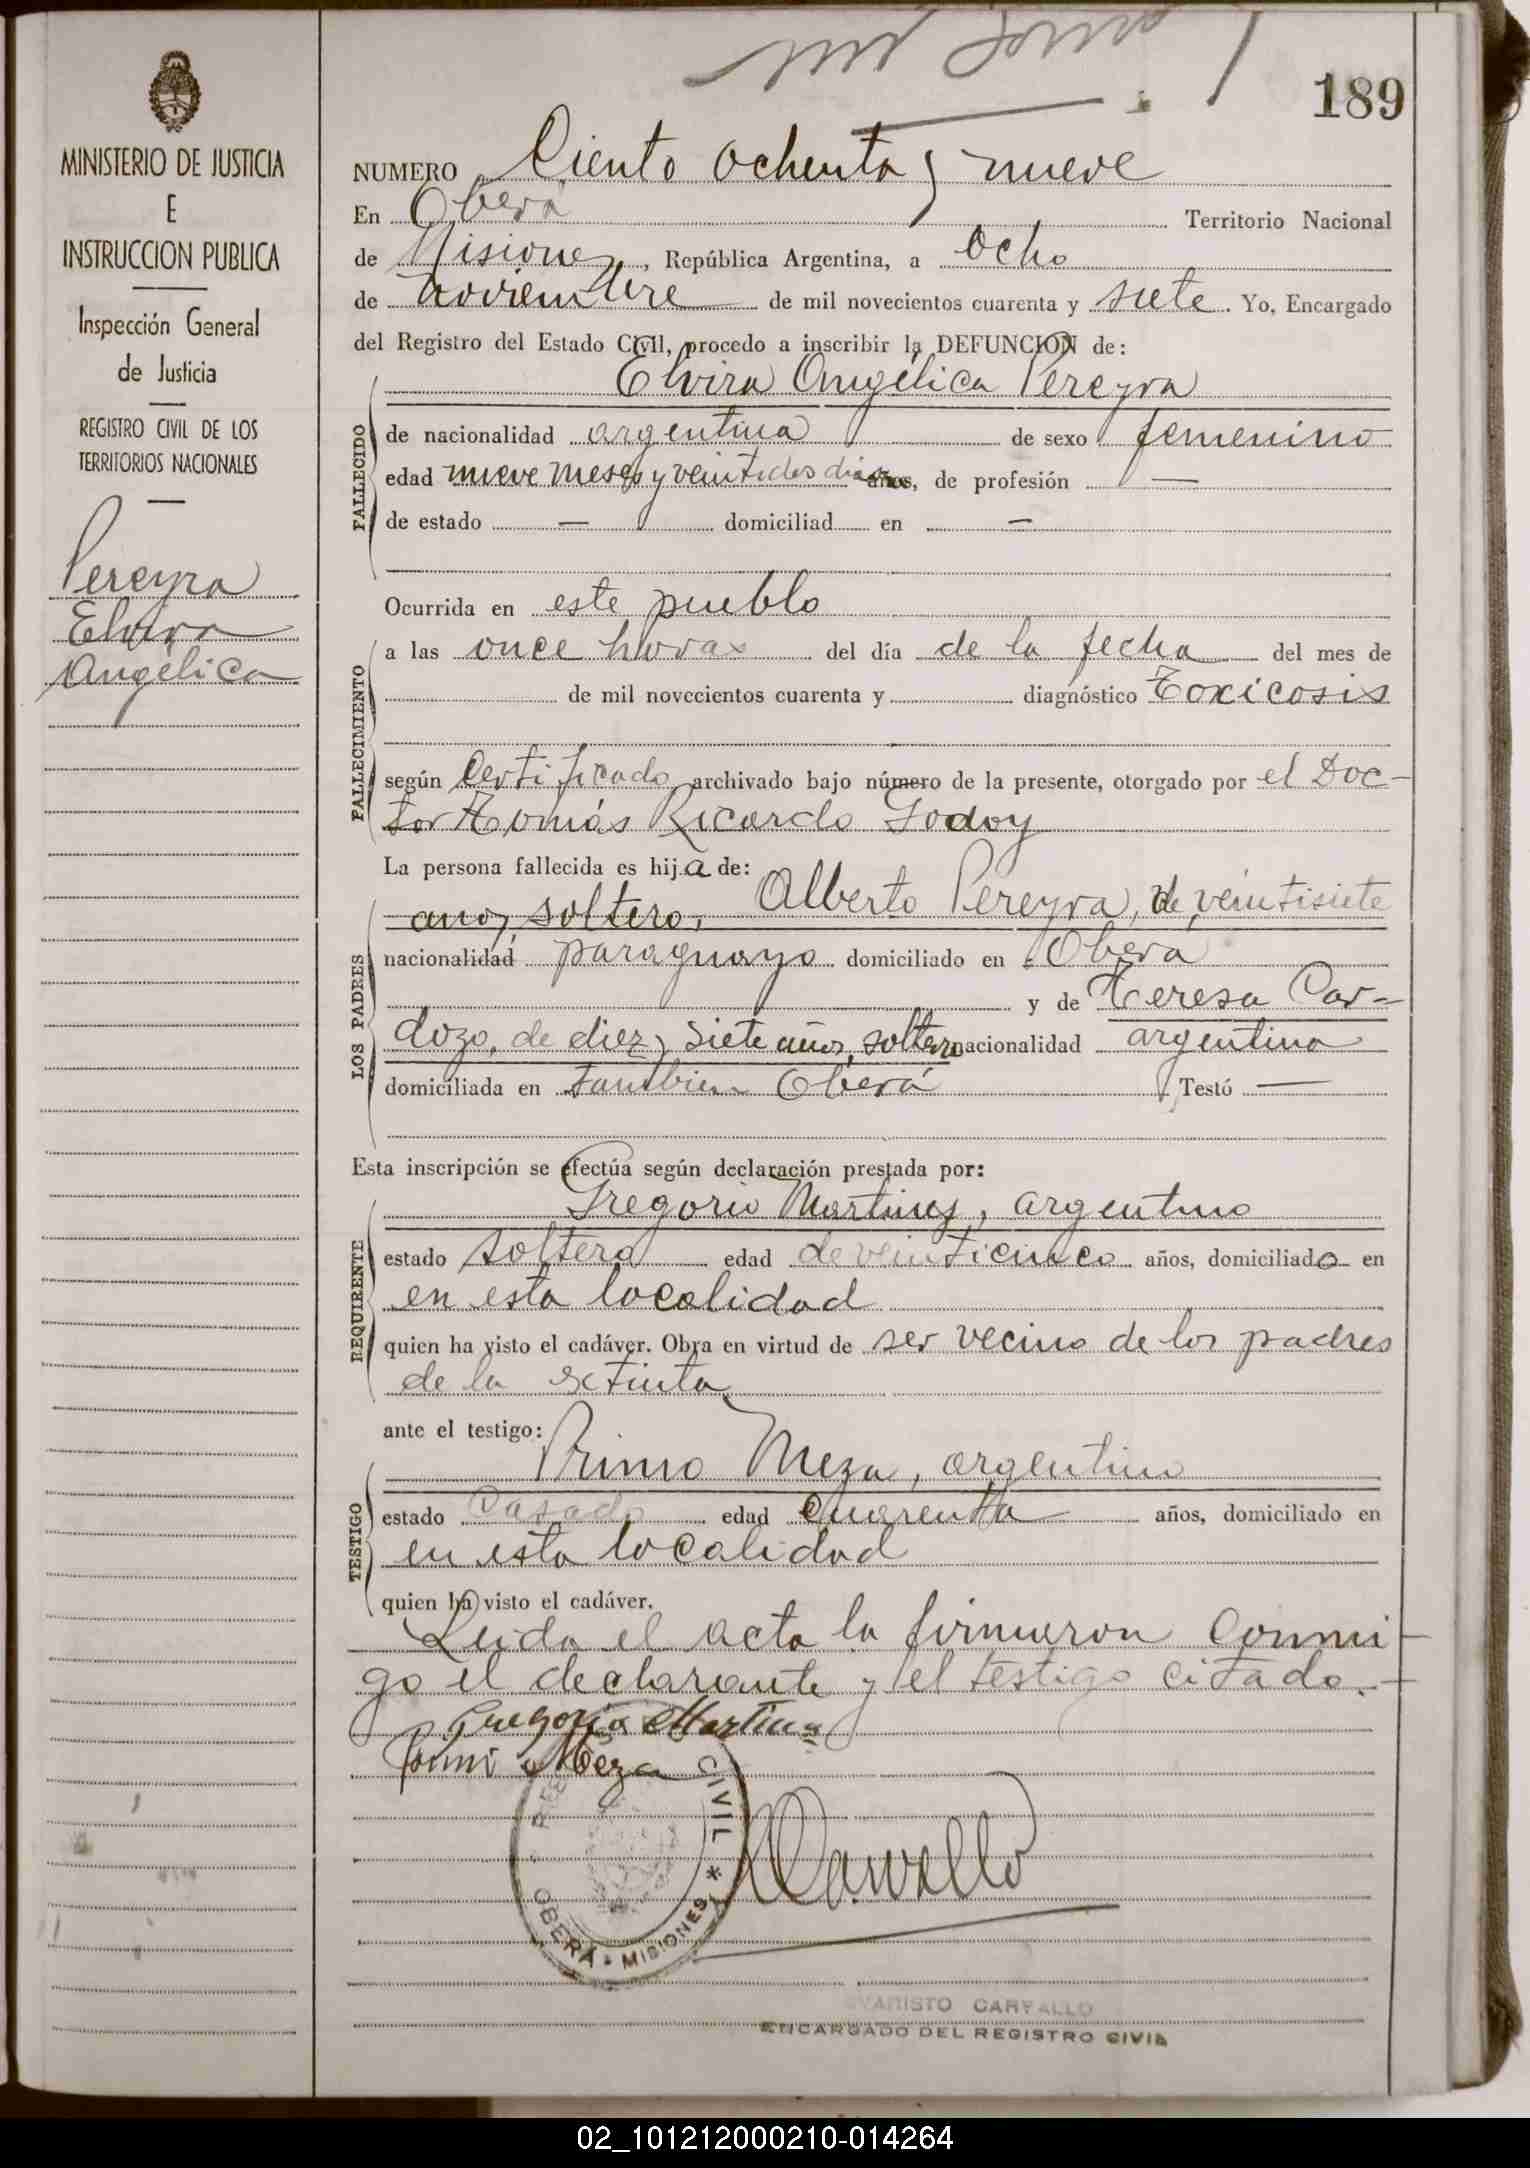 189
MINISTERIO DE JUSTICIA
E
INSTRUCCION PUBLICA
Inspección General
de Justicia
REGISTRO CIVIL DE LOS
TERRITORIOS NACIONALES
Pereyra
Elvira
Angélica
NUMERO Ciento ochenta y nueve
En Oberá Territorio Nacional
de Misiones, República Argentina, a ocho
de noviembre de mil novecientos cuarenta y siete. Yo, Encargado
del Registro del Estado Civil, procedo a inscribir la DEFUNCION de:
Elvira Angélica Pereyra
FALLECIDO
de nacionalidad argentina de sexo femenino
edad nueve meses y veintidos dias años, de profesión —
de estado — domiciliad en —
FALLECIMIENTO
Ocurrida en este pueblo
a las once horas del día de la fecha del mes de
de mil novecientos cuarenta y diagnóstico Toxicosis
según certificado archivado bajo número de la presente, otorgado por el Doc-
tor Tomás Ricardo Godoy
LOS PADRES
La persona fallecida es hija de:
Alberto Pereyra, de veintisiete
años, soltero,
nacionalidad paraguayo domiciliado en Oberá
y de Teresa Car-
dozo, de diez y siete años, soltera nacionalidad argentina
domiciliada en tambien Oberá Testó —
Esta inscripción se efectúa según declaración prestada por:
REQUIRENTE
Gregorio Martinez, argentino
estado soltero edad de veinticinco años, domiciliado en
en esta localidad
quien ha visto el cadáver. Obra en virtud de ser vecino de los padres
de la extinta
ante el testigo:
TESTIGO
Primo Meza, argentino
estado casado edad cuarenta años, domiciliado en
en esta localidad
quien ha visto el cadáver.
Leida el acta la firmaron conmi-
go el declarante y el testigo citado.-
Gregorio Martinez
Primo Meza
CIVIL * OBERÁ - MISIONES
Carvallo
EVARISTO CARVALLO
ENCARGADO DEL REGISTRO CIVIL
02_101212000210-014264